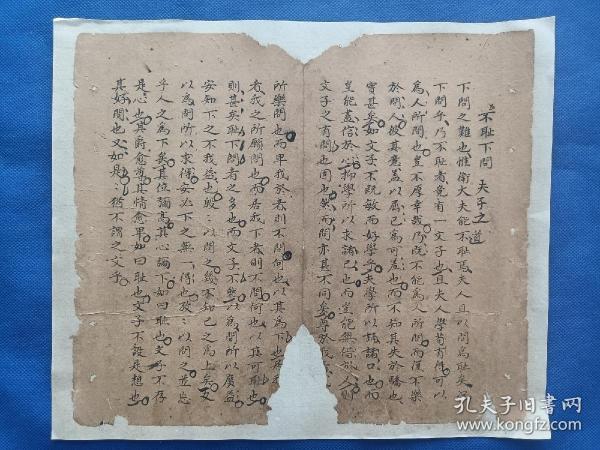 不耻下問 夫子之道
下問之難也惟衛大夫能不耻焉夫人且以問為耻矣
下問乎乃不耻者竟有一文子也且夫人學苟有得可以
為人所問也豈不厚幸哉乃既不能為人所問而復不樂
於問人彼其意蓋以屈己為可羞也而不知其失於驕也
實甚矣如文子不既敏而好學乎夫學所以誦諸口也而
豈能盡信於心抑學所以求諸己也而豈能無
文子之有問也固也然而問亦甚不同矣
所樂問也而卑我於者則不問何也以其為下也
者我之所願問也而居我下者則不問何也以其可耻也
則甚矣耻下問者之多也而文子不然以為問所以廣益
安知下之不我益也毀以問之幾不知己之為上矣
以為問所以求得安必下之無一得也故以問之並忘
乎人之為下矣其位謫高其心謫下如曰耻也文子不存
是心也其爵愈尊其情愈卑如曰耻也文子不設是想也
真好問也又如是猶不謂之文乎
孔夫子旧书网
www.kongfz.com